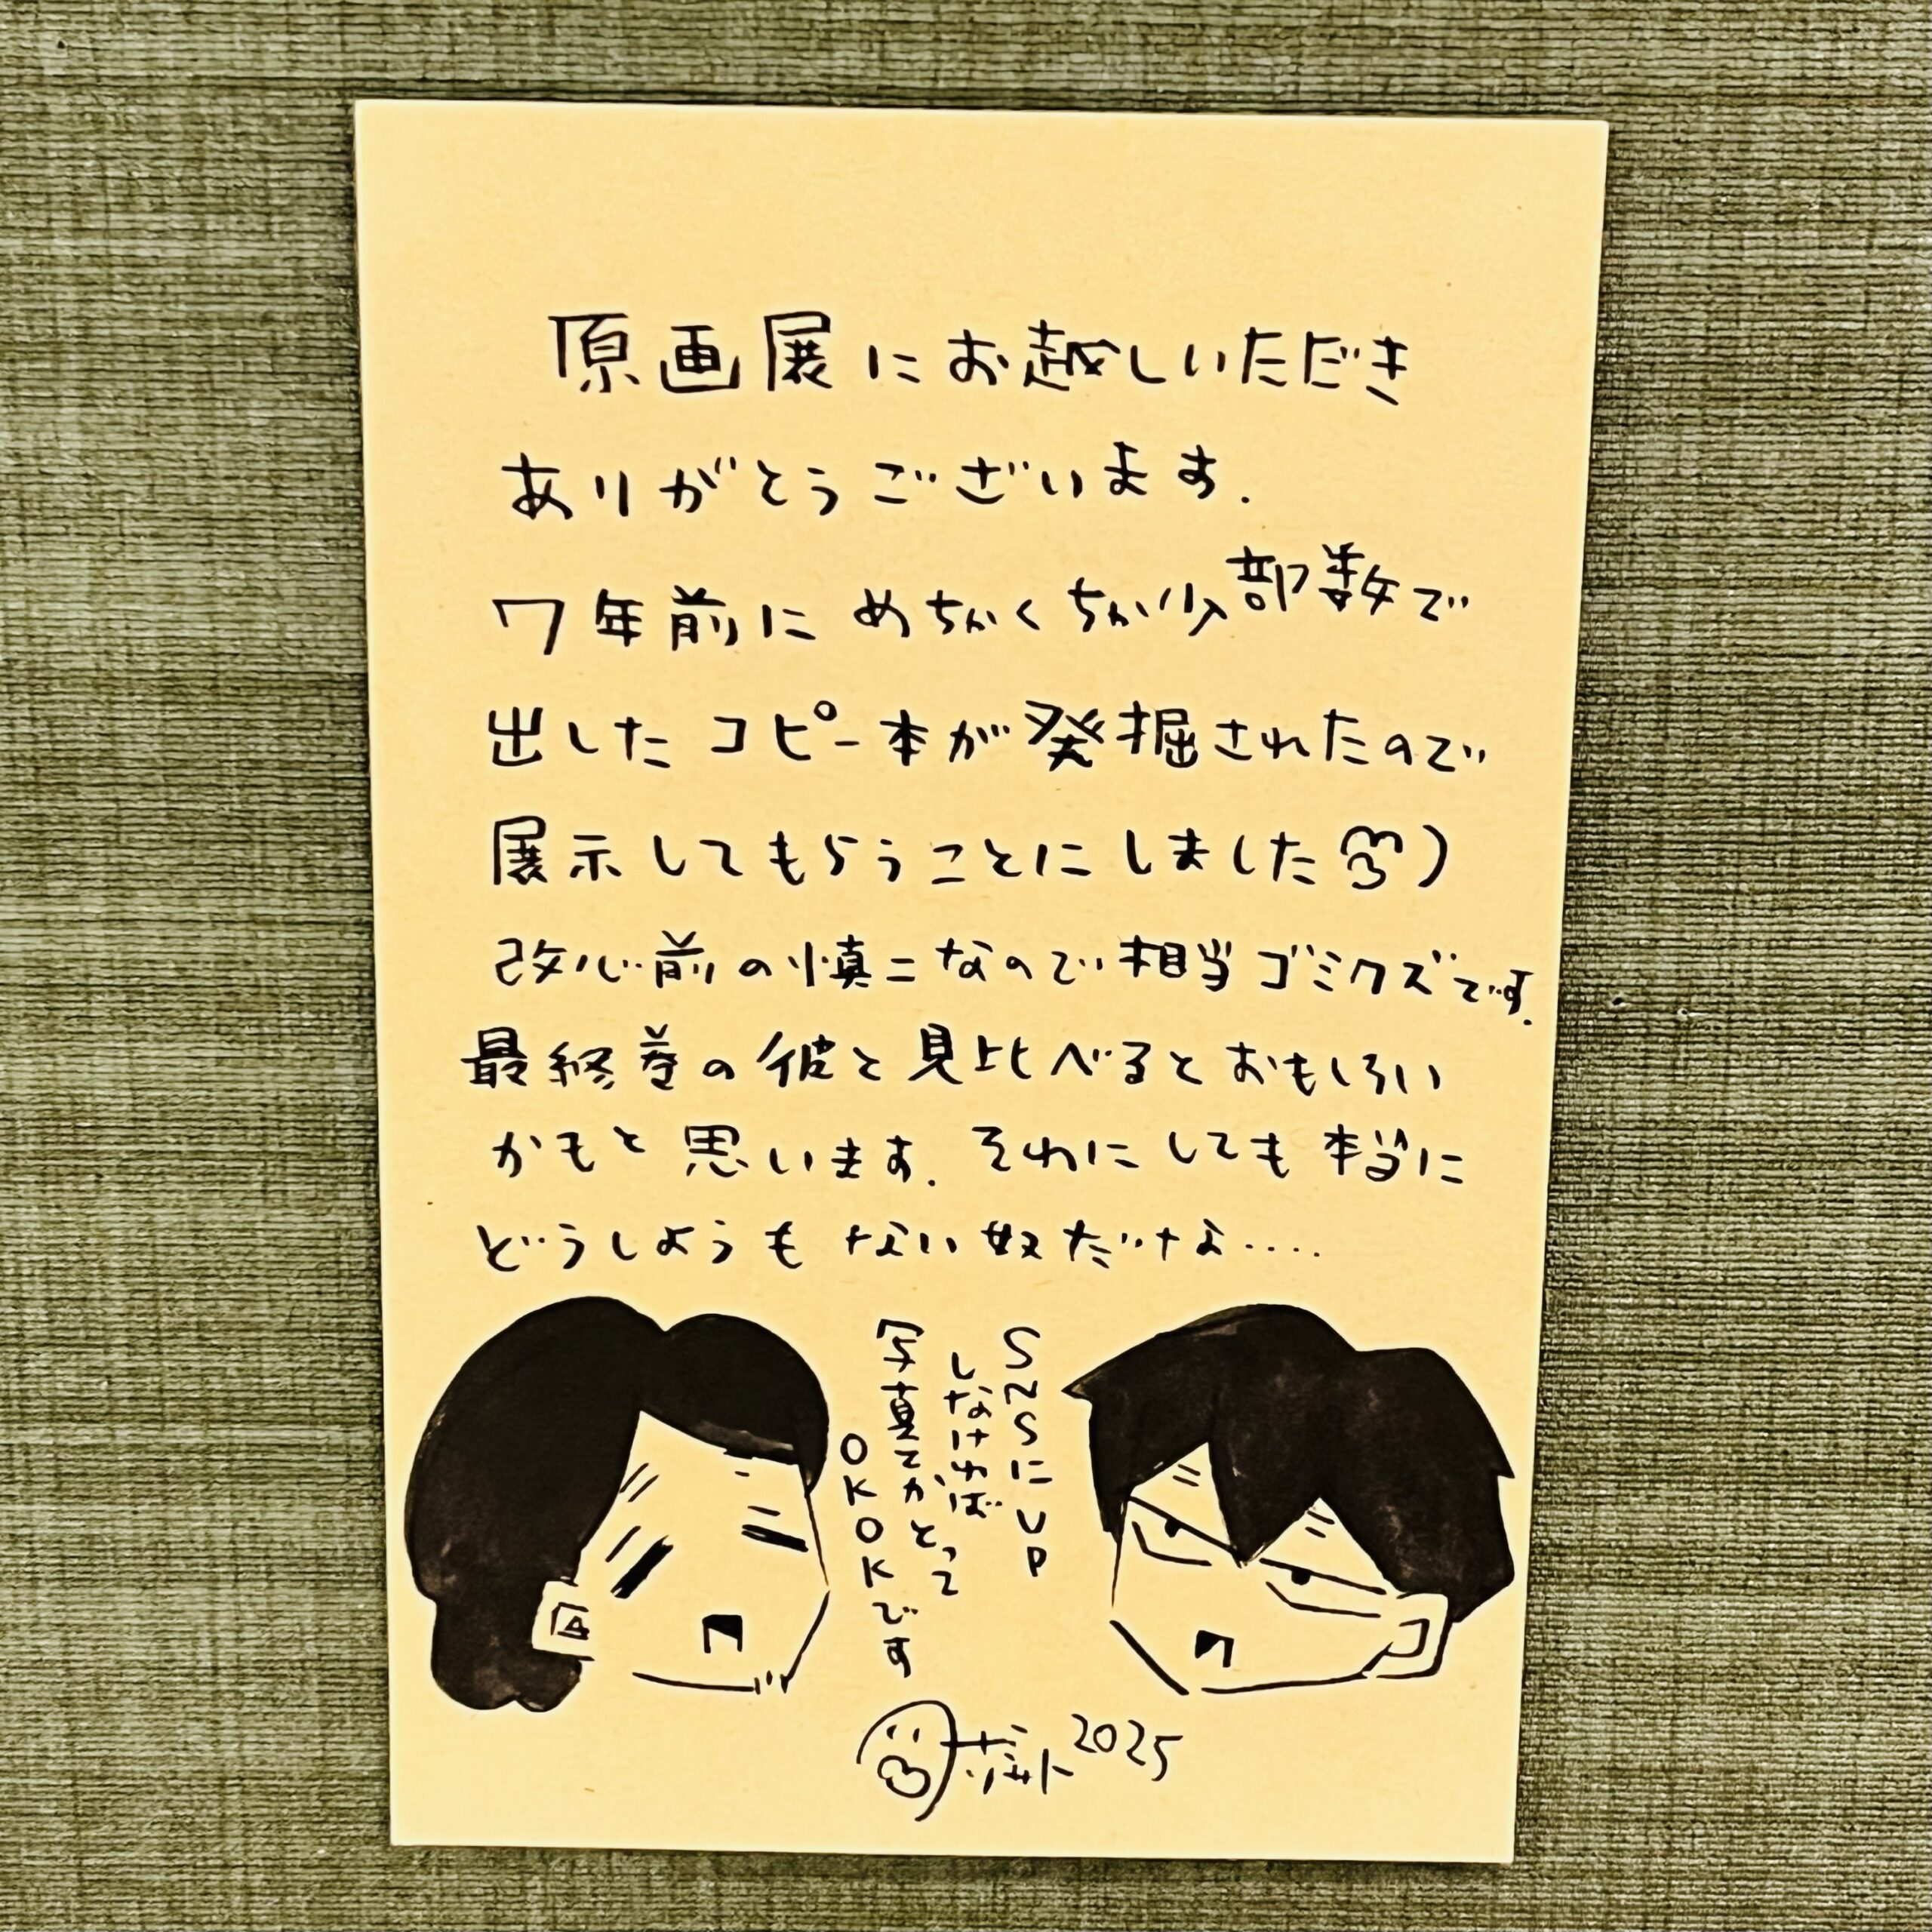 原画展にお越しいただき
ありがとうございます.
7年前にめちゃくちゃ少部数で
出したコピー本が発掘されたので
展示してもらうことにしました
改心前の慎二なので相当ゴミクズです.
最終巻の彼と見比べるとおもしろい
かもと思います. それにしても本当に
どうしようもない奴だナな‥‥
SNSにUP
しなければ
写真とか
とって
OKOKです
2025